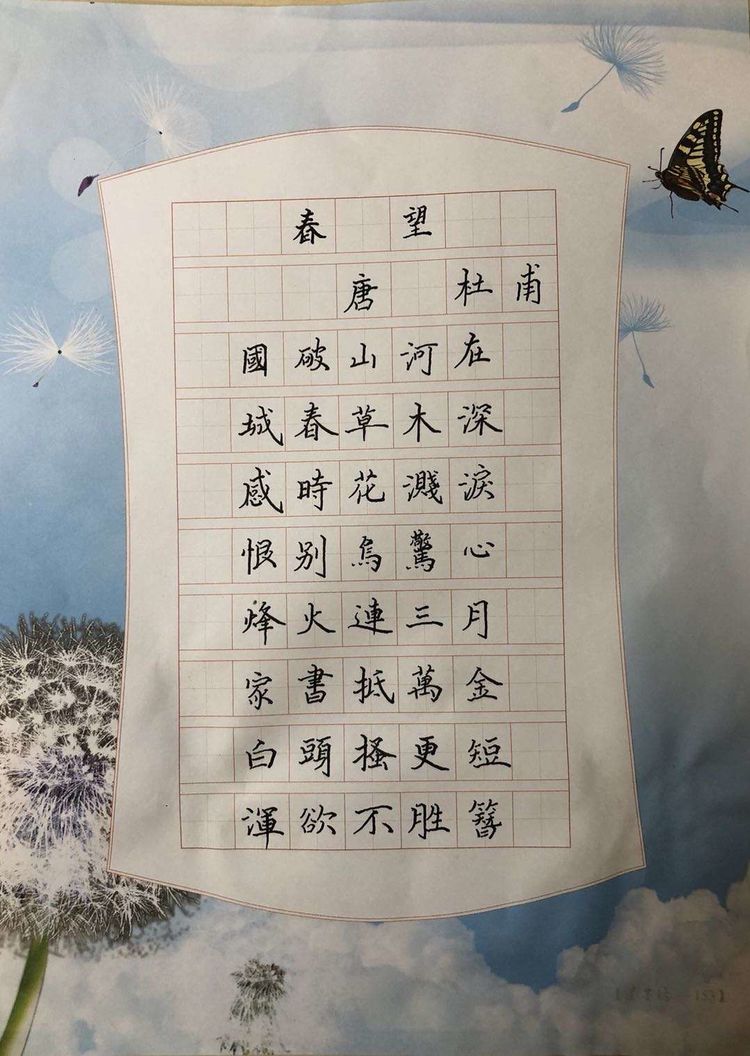 春望
唐 杜甫
國破山河在
城春草木深
感時花濺淚
恨别鳥驚心
烽火連三月
家書抵萬金
白頭搔更短
渾欲不胜簪
153】